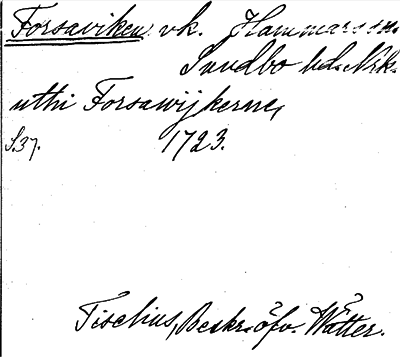 Forsaviken, vk. Hammars sn.
Sundbo hd. Nrk.
uthi Forsawijkerne,
S.37. 1723.
Tiselius, Beskr. öfv. Wätter.